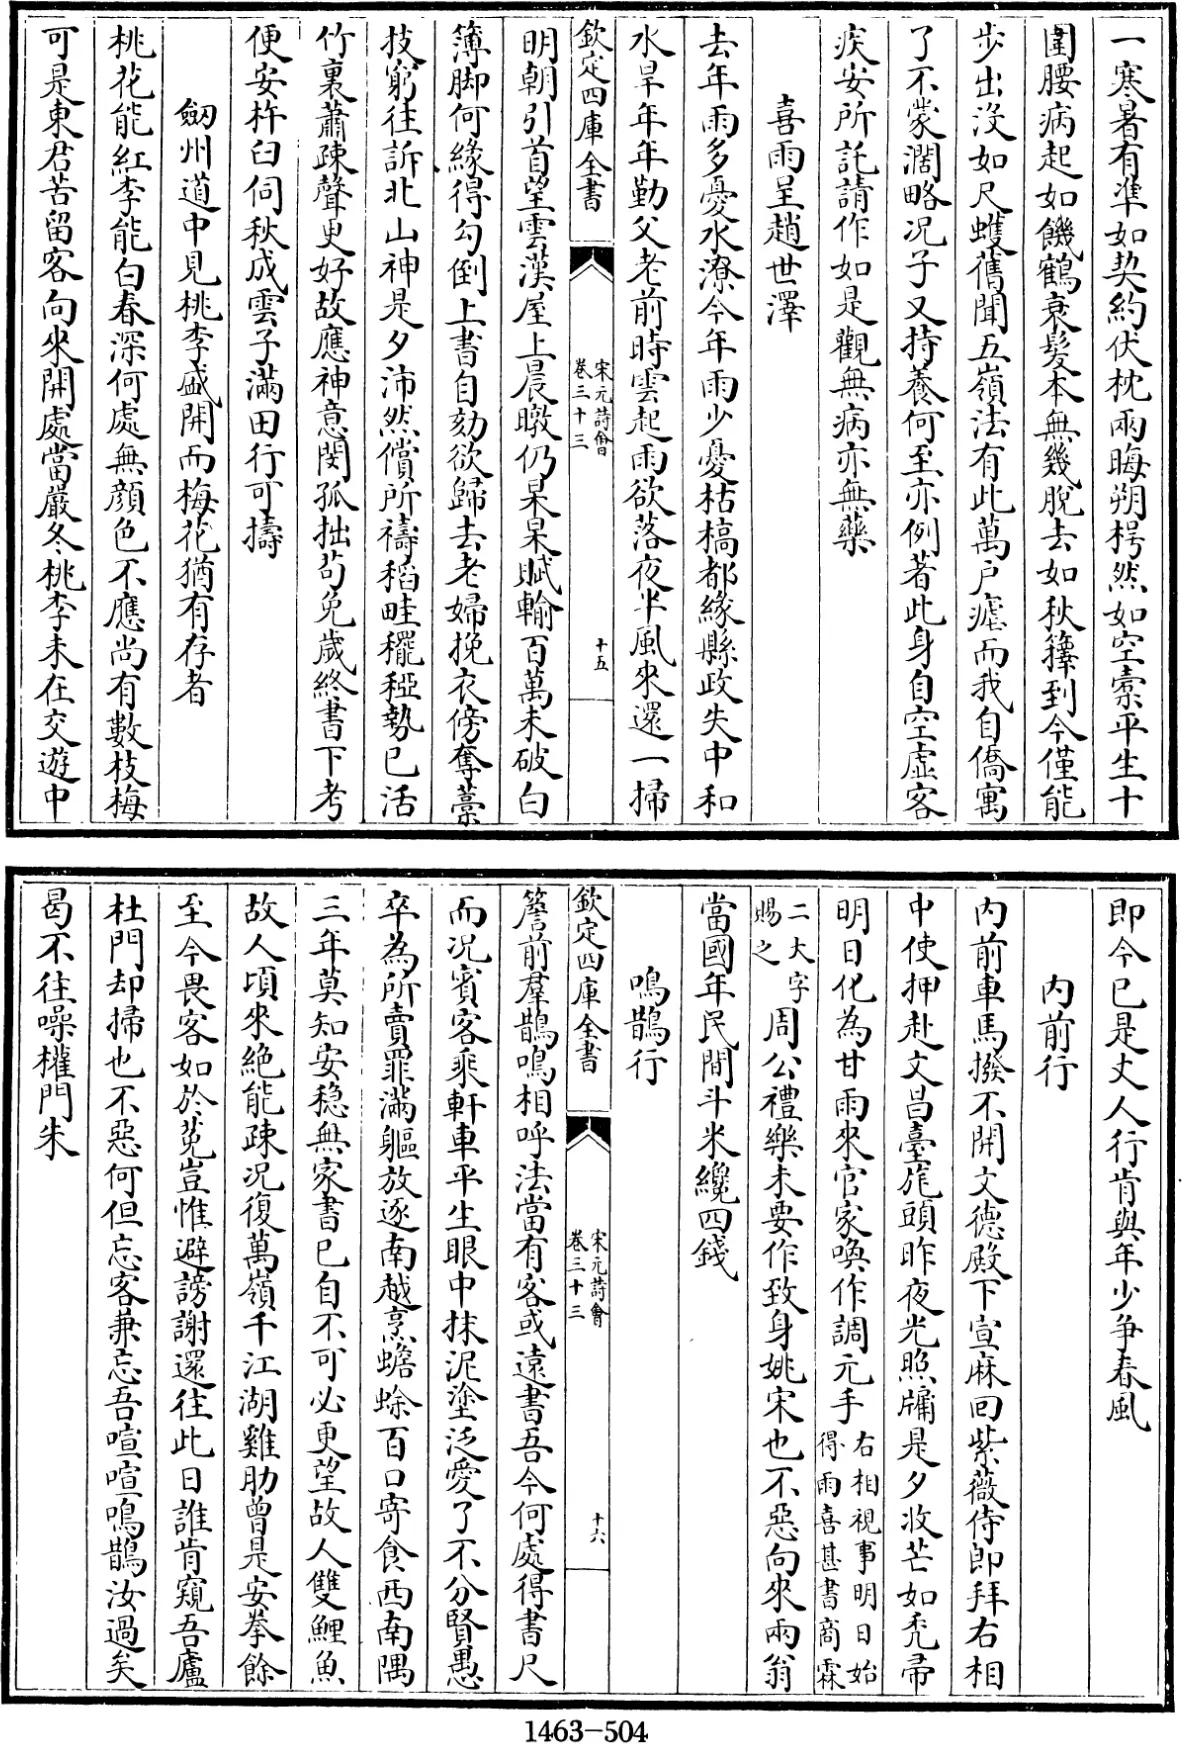 一寒暑有準如契約伏枕兩晦朔枵然如空橐平生十
圍腰病起如饑鶴衰髮本無幾脫去如秋籜到今僅能
步出没如尺蠖舊聞五嶺法有此萬户瘧而我自僑寓
了不蒙濶略况子又持養何至亦例著此身自空虛客
疾安所託請作如是觀無病亦無藥
喜雨呈趙世澤
去年雨多憂水潦今年雨少憂枯槁都緣縣政失中和
水旱年年勤父老前時雲起雨欲落夜半風來還一掃
欽定四庫全書
宋元詩會
卷三十三
十五
明朝引首望雲漢屋上晨暾仍杲杲賦輸百萬未破白
簿脚何緣得勾倒上書自劾欲歸去老婦挽衣傍奪藁
技窮往訴北山神是夕沛然償所禱稻畦䆉稏勢已活
竹裏蕭疎聲更好故應神意閔孤拙苟免歲終書下考
便安杵臼伺秋成雲子滿田行可擣
劒州道中見桃李盛開而梅花猶有存者
桃花能紅李能白春深何處無顔色不應尚有數枝梅
可是東君苦留客向來開處當嚴冬桃李未在交遊中
即今已是丈人行肯與年少争春風
内前行
内前車馬撥不開文德殿下宣麻回紫薇侍郎拜右相
中使押赴文昌臺旄頭昨夜光照牖是夕收芒如秃帚
明日化為甘雨來官家喚作調元手右相視事明日始
得雨喜甚書商霖
二大字
賜之
周公禮樂未要作致身姚宋也不惡向來兩翁
當國年民間斗米纔四錢
鳴鵲行
欽定四庫全書
宋元詩會
卷三十三
十六
簷前羣鵲鳴相呼法當有客或遠書吾今何處得書尺
而况賓客乘軒車平生眼中抹泥塗泛愛了不分賢愚
卒為所賣罪滿軀放逐南越烹蟾蜍百口寄食西南隅
三年莫知安穩無家書已自不可必更望故人雙鯉魚
故人頃來絶能疎况復萬嶺千江湖雞肋曾是安拳餘
至今畏客如於菟豈惟避謗謝還往此日誰肯窺吾廬
杜門却掃也不惡何但忘客兼忘吾喧喧鳴鵲汝過矣
曷不往噪權門朱
1463-504